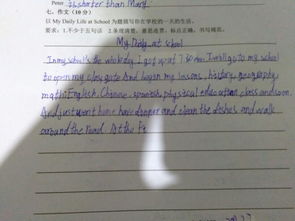 Peter is shorter than Mary.
七、作文(10分)
以 My Daily Life at School 为题描写你在学校的一天的生活。
要求：1.不少于五句话 2.条理清楚，意思连贯，标点正确，书写规范。
My Daily at school
In my school's the whole day. I got up at I will go to my school
to open my class And began my lessons, history, geography
math, English, Chinese, spanish, physical education class and soon.
And just went home have danper and clean the dishes and walk
around the road. At the